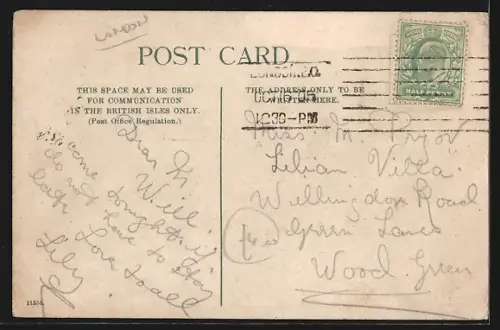 LONDON
POST CARD.
THIS SPACE MAY BE USED
FOR COMMUNICATION
IN THE BRITISH ISLES ONLY.
(Post Office Regulation.)
THE ADDRESS ONLY TO BE
WRITTEN HERE.
OC 16 05
12 30-PM
HALFPENNY
Dear
Will
come tonight if
do not have to stay
late Love to all
Lily
Miss M. Pryor
Lilian Villa
Wellingdon Road
Green Lanes
Wood Green